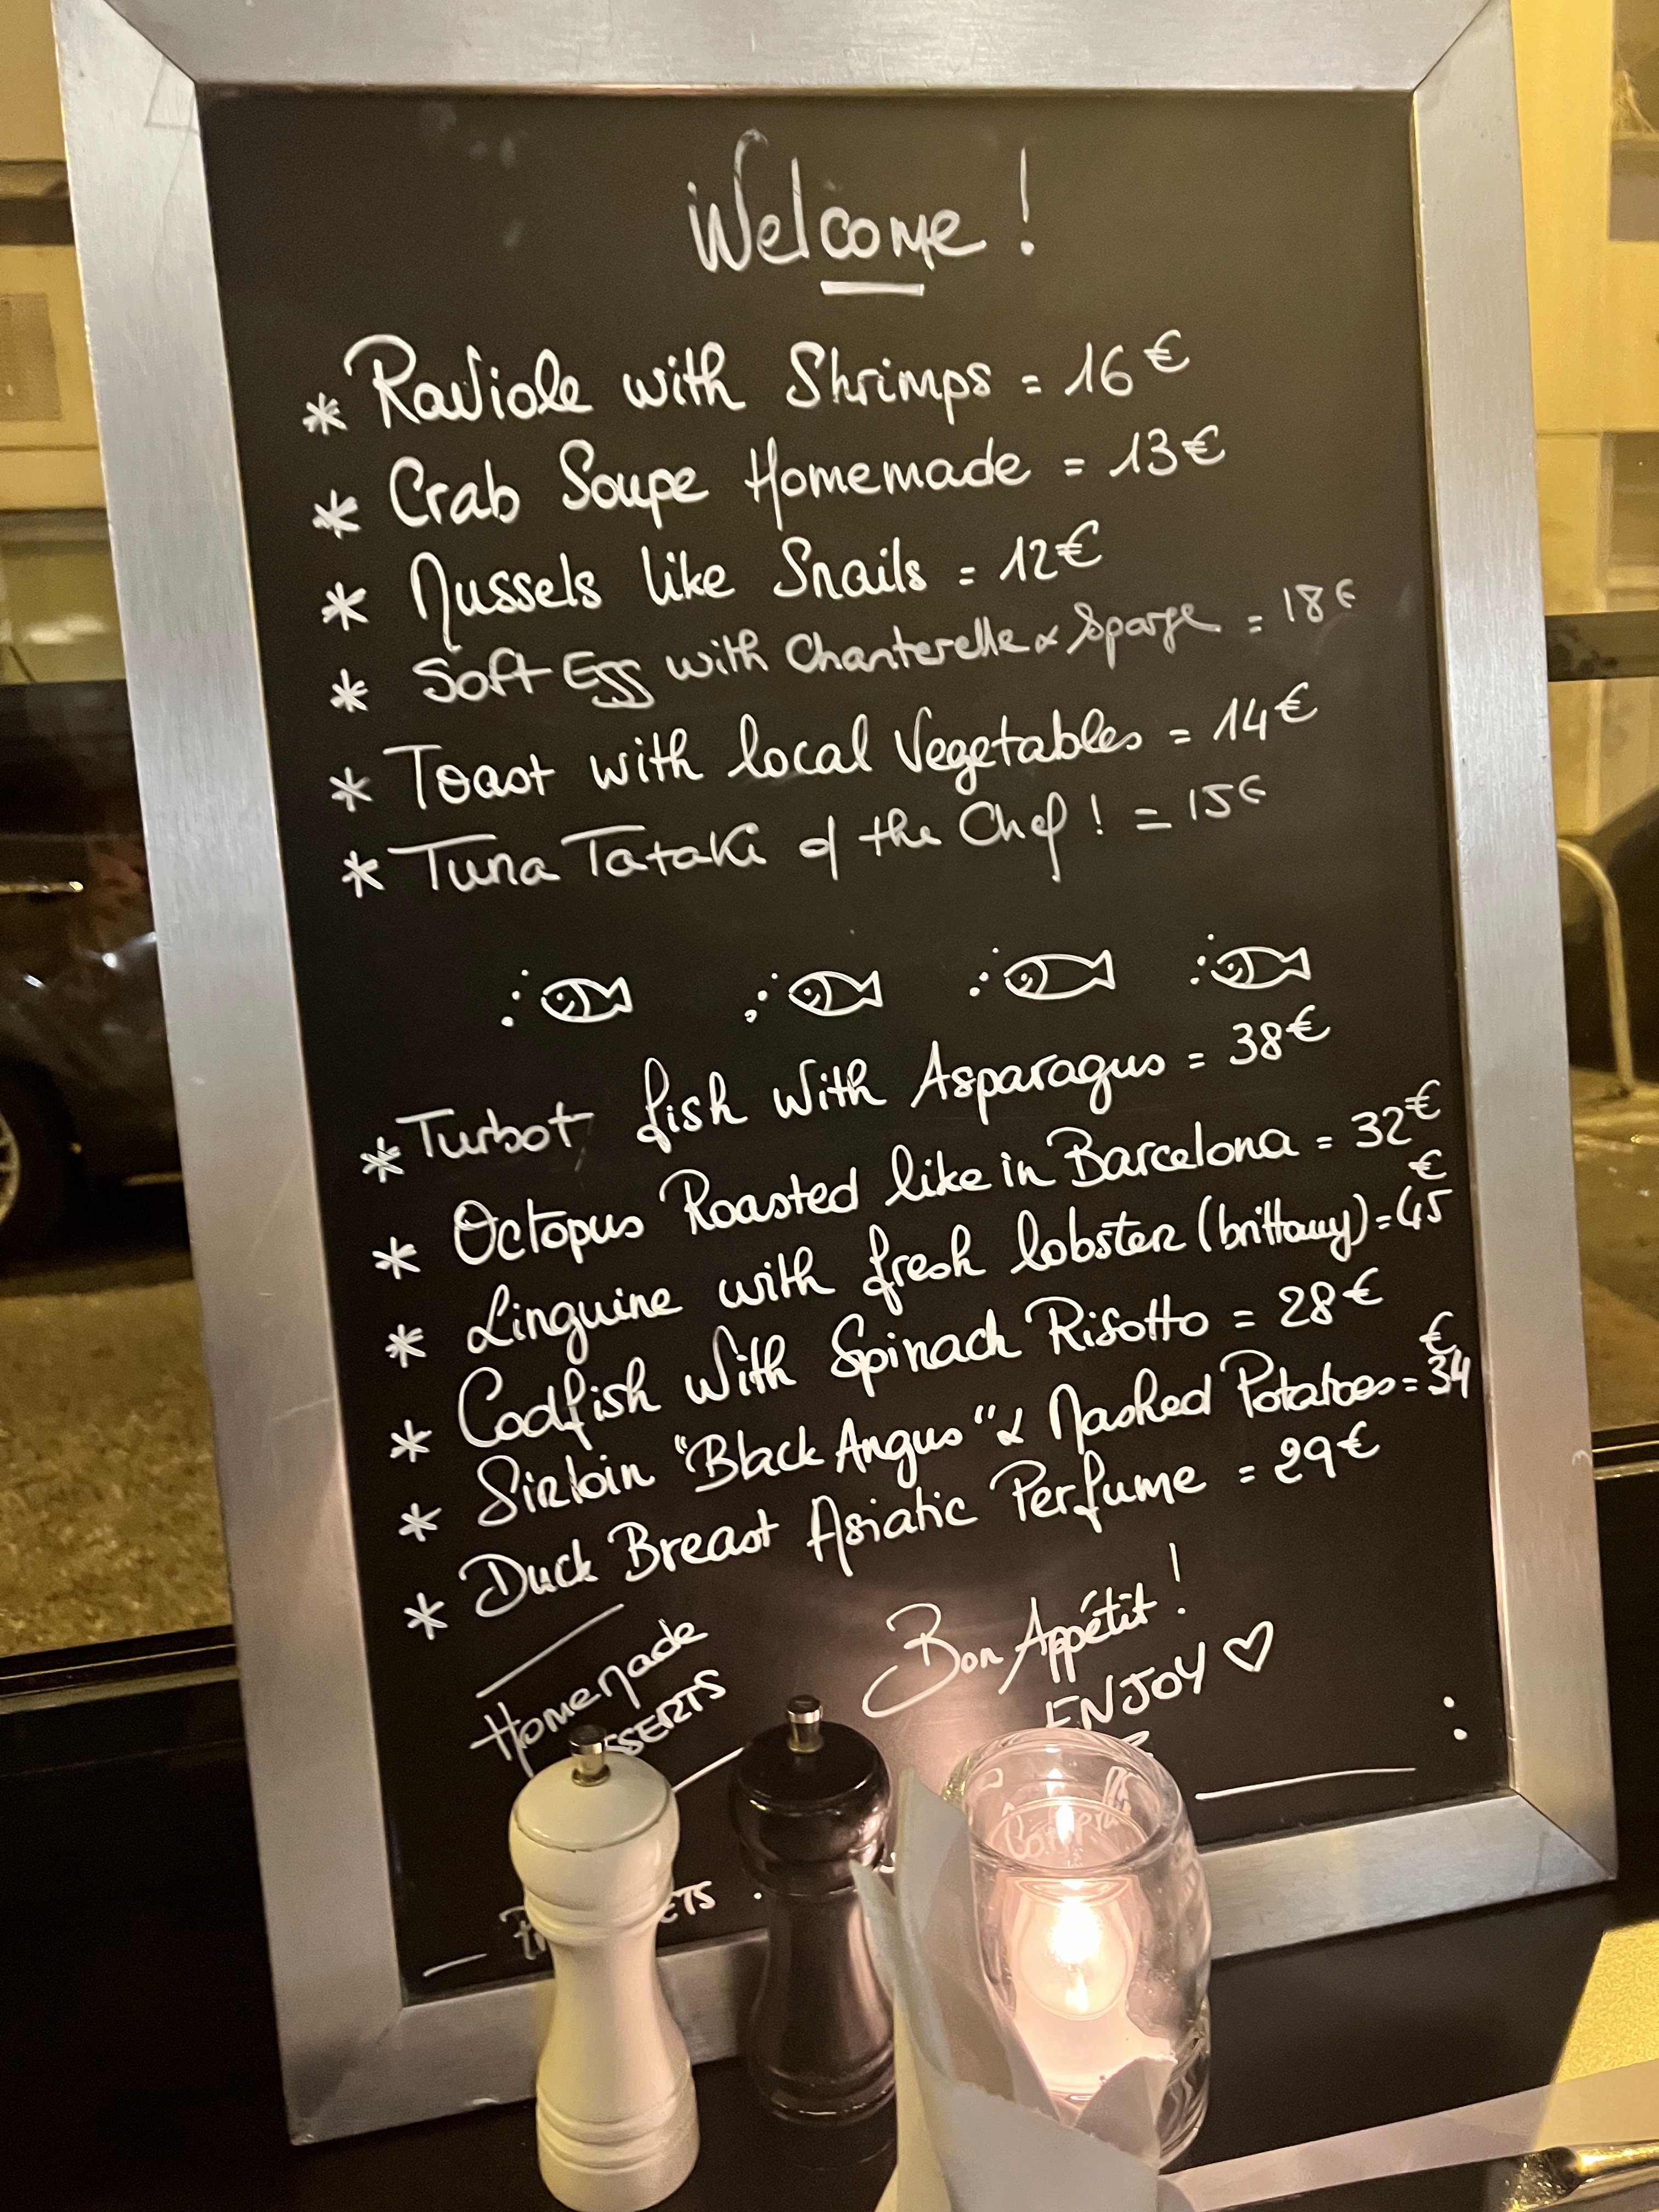 Welcome !
* Raviole with Shrimps = 16€
* Crab Soupe Homemade = 13€
* Mussels like Snails = 12€
* Soft Egg with Chanterelle & Sparge = 18€
* Toast with local Vegetables = 14€
* Tuna Tataki of the Chef ! = 15€
* Turbot fish with Asparagus = 38€
* Octopus Roasted like in Barcelona = 32€
* Linguine with fresh lobster (brittany) = 45€
* Codfish with Spinach Risotto = 28€
* Sirloin "Black Angus" & Mashed Potatoes = 34€
* Duck Breast Asiatic Perfume = 29€
Homemade
Bon Appétit !
ENJOY ♡